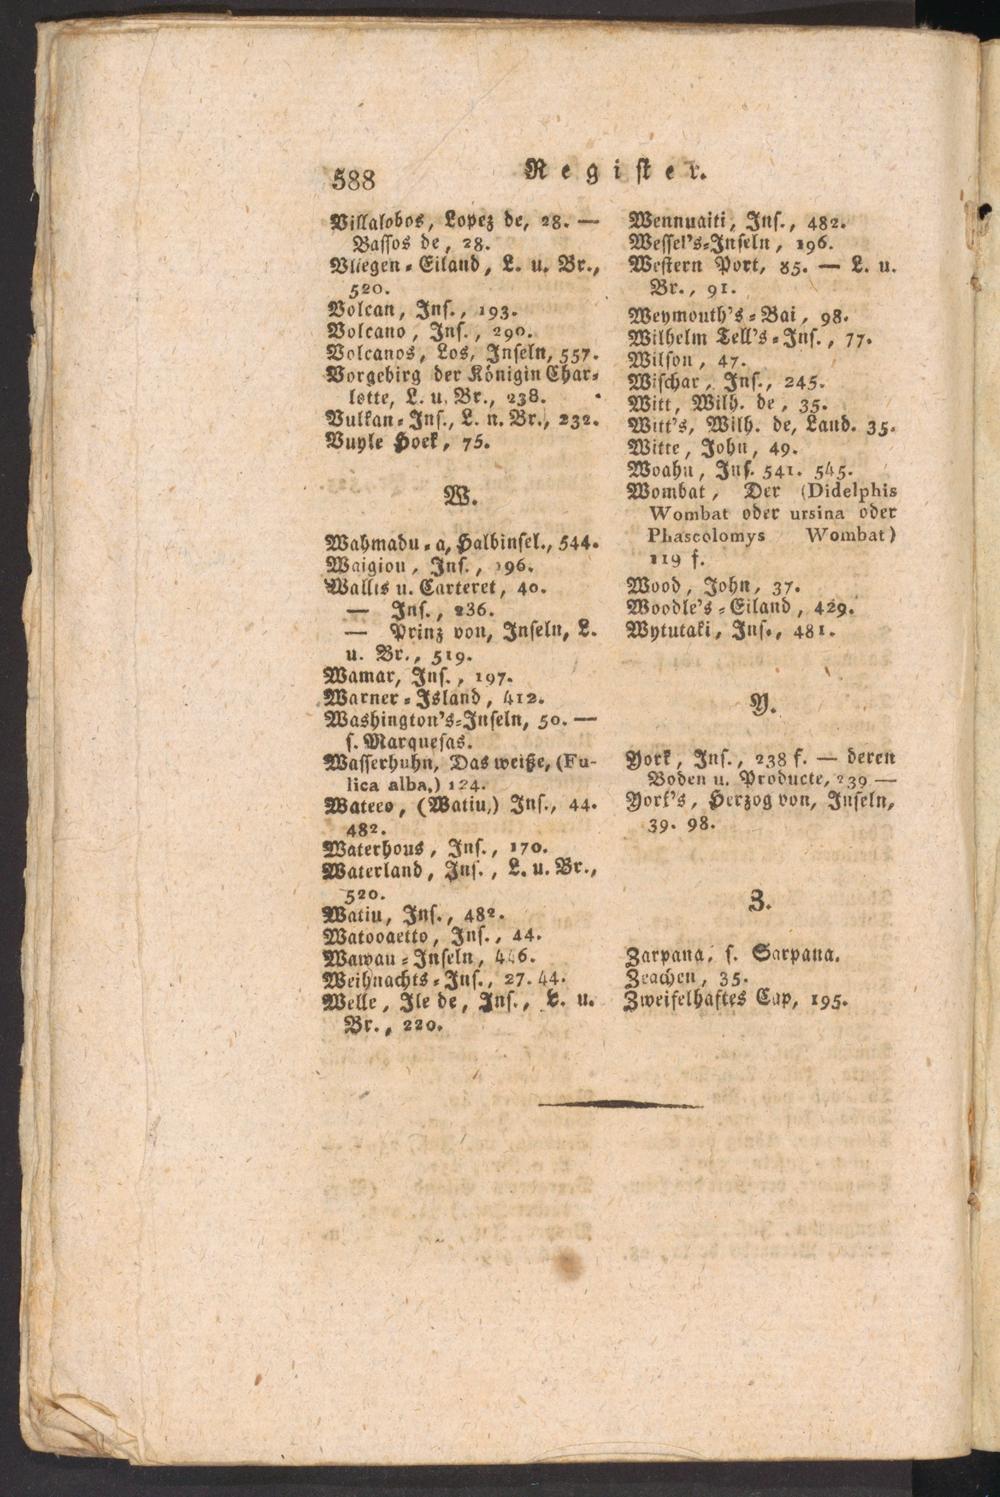 588
Register.
Villalobos, Lopez de, 28. —
Bassos de, 28.
Vliegen-Eiland, L. u. Br.,
520.
Volcan, Ins., 193.
Volcano, Ins., 290.
Volcanos, Los, Inseln, 557.
Vorgebirg der Königin Char-
lotte, L. u. Br., 238.
Vulkan-Ins., L. n. Br., 232.
Vuyle Hoek, 75.
W.
Wahmadu-a, Halbinsel., 544.
Waigiou, Ins., 196.
Wallis u. Carteret, 40.
— Ins., 236.
— Prinz von, Inseln, L.
u. Br., 519.
Wamar, Ins., 197.
Warner-Island, 412.
Washington's-Inseln, 50. —
s. Marquesas.
Wasserhuhn, Das weiße, (Fu-
lica alba,) 124.
Wateeo, (Watiu,) Ins., 44.
482.
Waterhous, Ins., 170.
Waterland, Ins., L. u. Br.,
520.
Watiu, Ins., 482.
Watooaetto, Ins., 44.
Wawau-Inseln, 446.
Weihnachts-Ins., 27. 44.
Welle, Ile de, Ins., L. u.
Br., 220.
Wennuaiti, Ins., 482.
Wessel's-Inseln, 196.
Western Port, 85. — L. u.
Br., 91.
Weymouth's-Bai, 98.
Wilhelm Tell's-Ins., 77.
Wilson, 47.
Wischar, Ins., 245.
Witt, Wilh. de, 35.
Witt's, Wilh. de, Land. 35.
Witte, John, 49.
Woahu, Ins. 541. 545.
Wombat, Der (Didelphis
Wombat oder ursina oder
Phascolomys Wombat)
119 f.
Wood, John, 37.
Woodle's-Eiland, 429.
Wytutaki, Ins., 481.
Y.
York, Ins., 238 f. — deren
Boden u. Producte, 239 —
York's, Herzog von, Inseln,
39. 98.
Z.
Zarpana, s. Sarpana.
Zeachen, 35.
Zweifelhaftes Cap, 195.